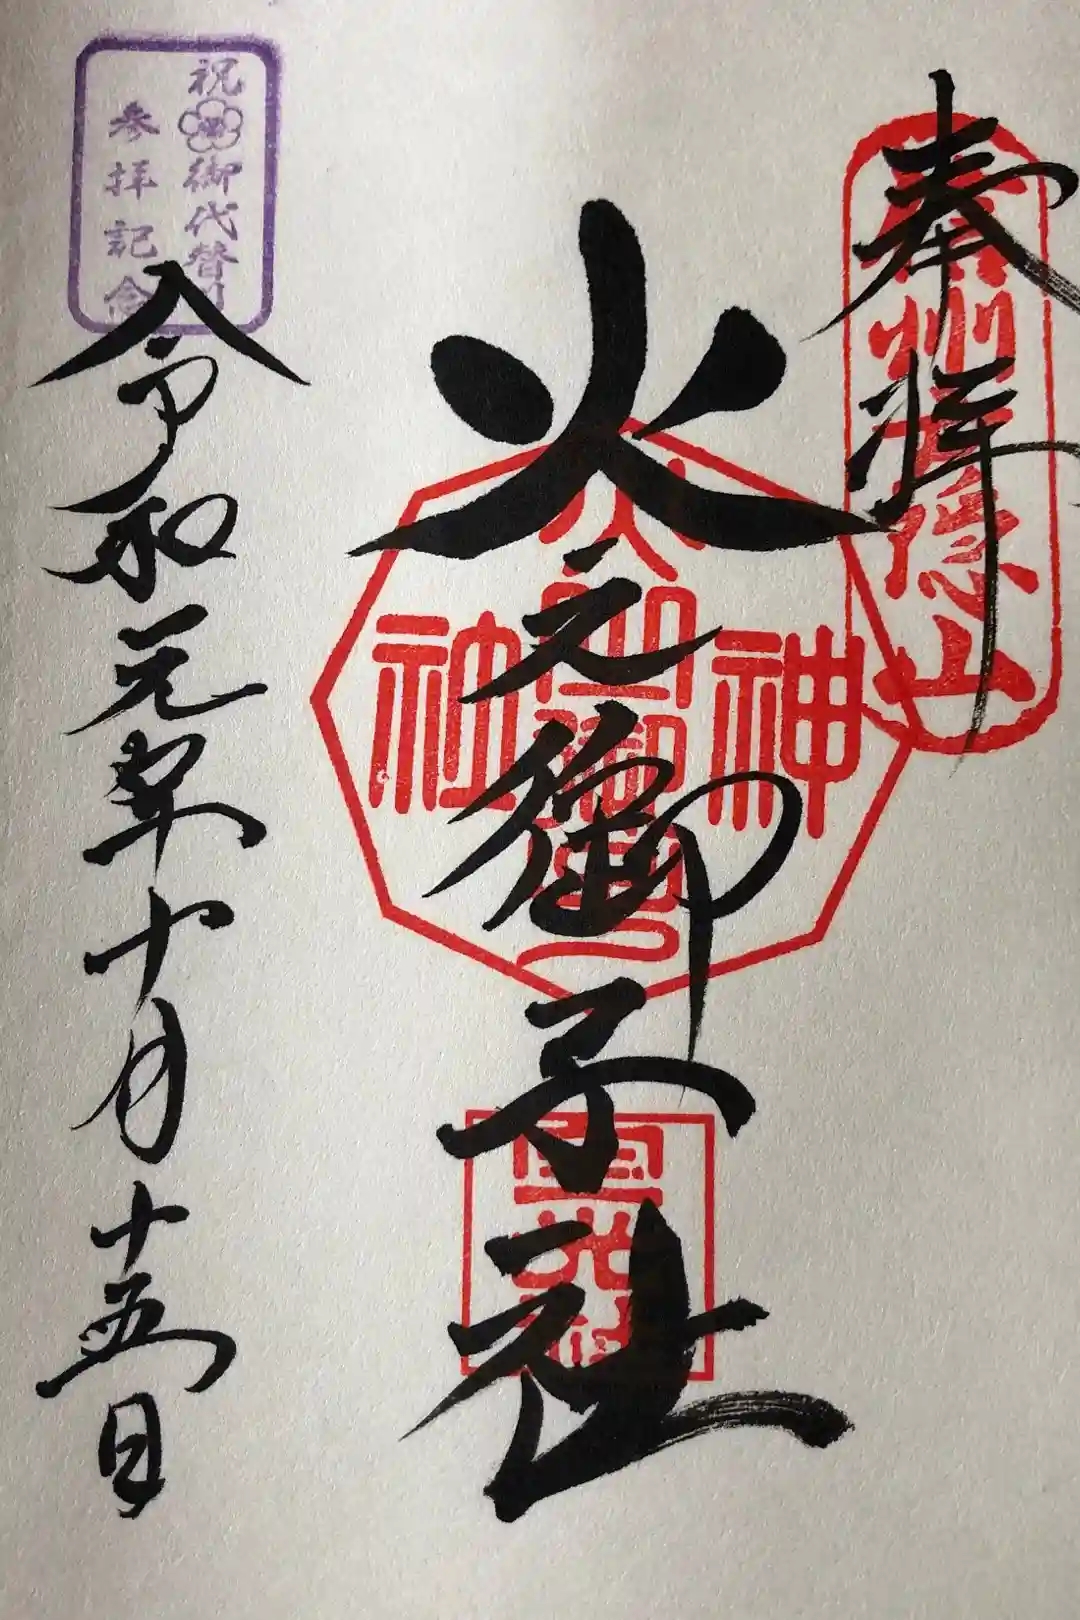 奉拝
信州戸隠山
火之御子社
神
社
祝御代替り
参拝記念
令和元年十月十五日